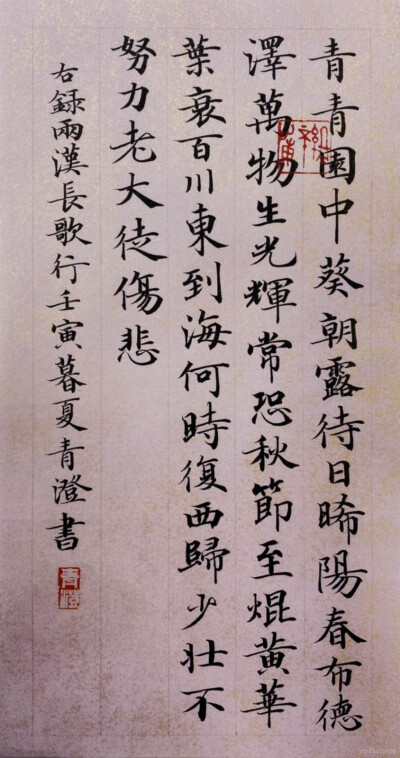 青青園中葵朝露待日晞陽春布德
澤萬物生光輝常恐秋節至焜黃華
葉衰百川東到海何時復西歸少壯不
努力老大徒傷悲
右録兩漢長歌行壬寅暮夏青澄書
青澄